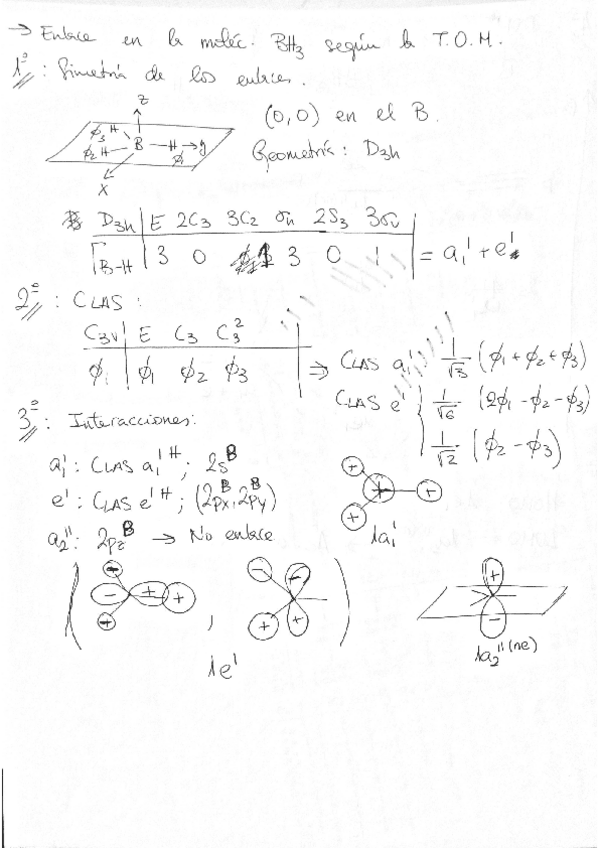 → Enlace en la moléc. BH₃ según la T.O.M.
1º: Simetría de los enlaces.
z
ϕ₃ H
ϕ₂ H B H y
ϕ₁
x
(0,0) en el B.
Geometría: D₃h
D₃h | E 2C₃ 3C₂ σh 2S₃ 3σv
Γ B-H | 3 0 1 3 0 1 = a₁' + e'
2º: CLAS:
C₃v | E C₃ C₃²
ϕ₁ | ϕ₁ ϕ₂ ϕ₃ ⇒ CLAS a₁' 1/√3 (ϕ₁ + ϕ₂ + ϕ₃)
CLAS e' { 1/√6 (2ϕ₁ - ϕ₂ - ϕ₃)
1/√2 (ϕ₂ - ϕ₃)
3º: Interacciones:
a₁': CLAS a₁' H ; 2s B
e': CLAS e' H ; (2px B, 2py B)
a₂'': 2pz B → No enlace
+ + + +
1a₁'
( - + + , - - + + )
1e'
+ -
1a₂'' (ne)